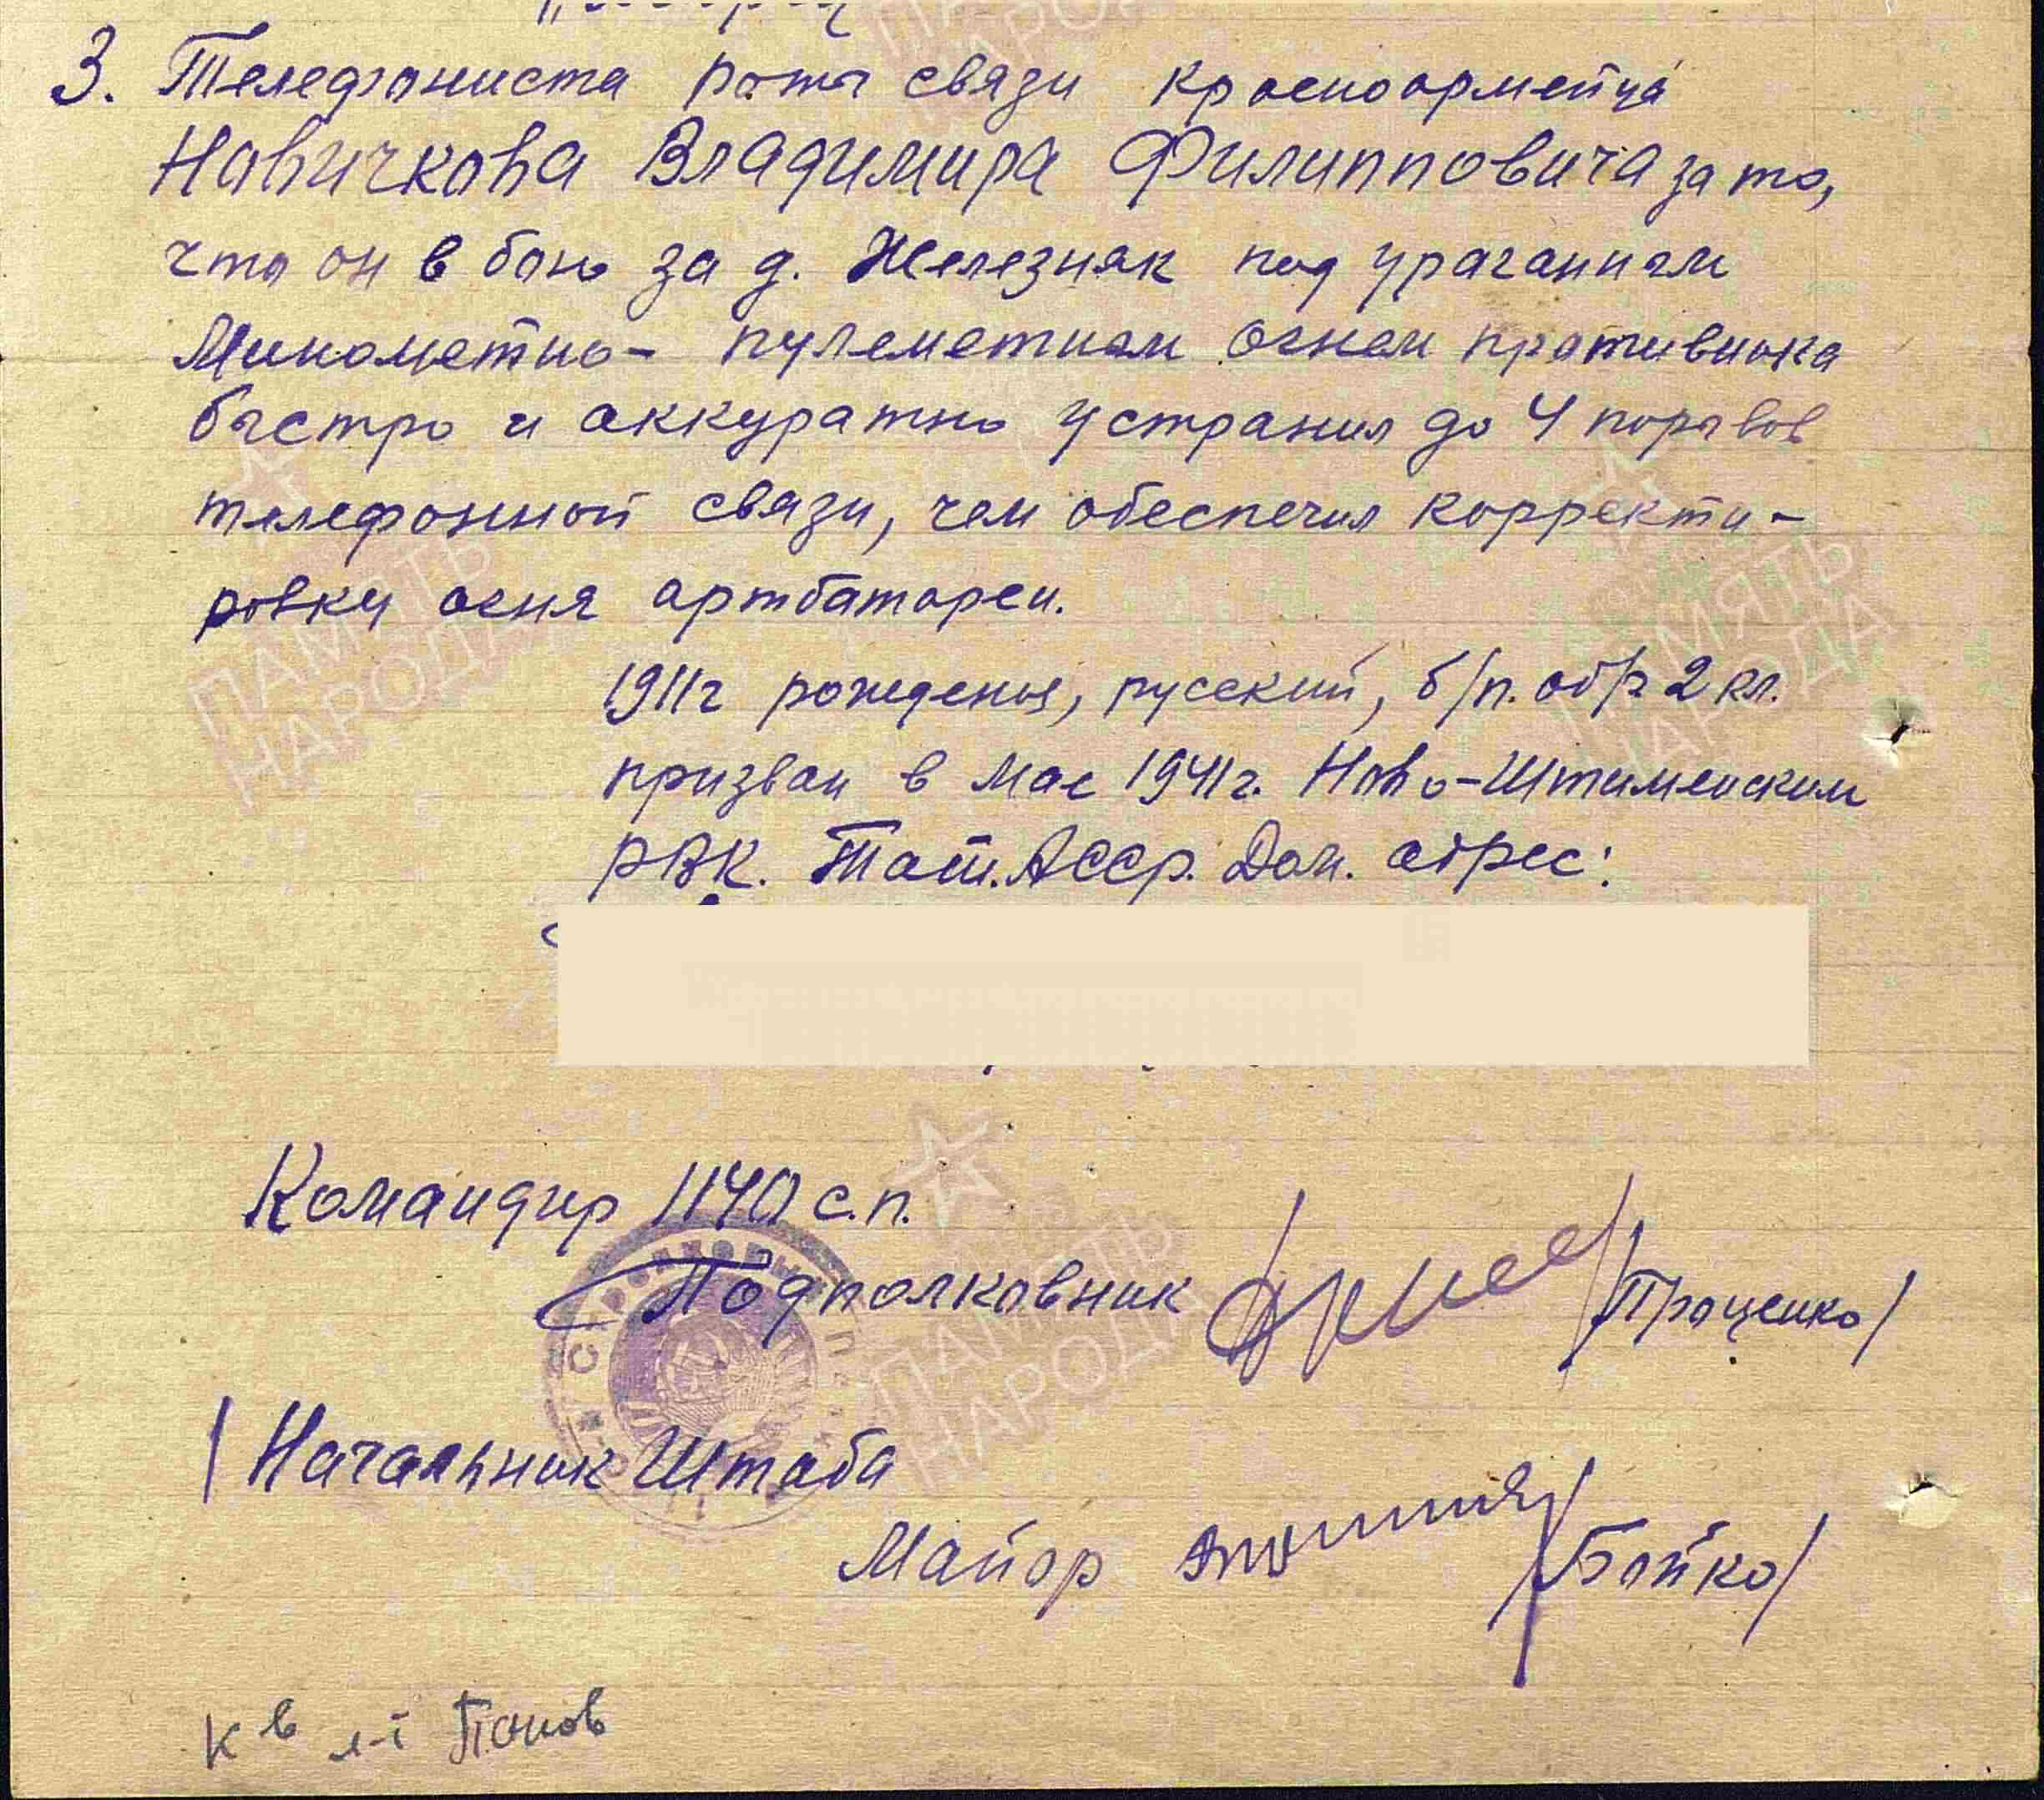 3. Телефониста роты связи красноармейца
Новичкова Владимира Филипповича за то,
что он в бою за д. Железняк под ураганным
Минометно- пулеметным огнем противника
быстро и аккуратно устранил до 4 порывов
телефонной связи, чем обеспечил корректи-
ровку огня артбатареи.
1911г рождения, русский, б/п. обр 2 кл.
призван в мае 1941г. Ново-Шишминским
РВК. Тат. АССР. Дом. адрес:
Командир 1140 с.п.
Подполковник /Проценко/
Начальник Штаба
Майор /Бойко/
СТРЕЛКОВЫЙ
ПАМЯТЬ
НАРОДА
ПАМЯТЬ
НАРОДА
ПАМЯТЬ
НАРОДА